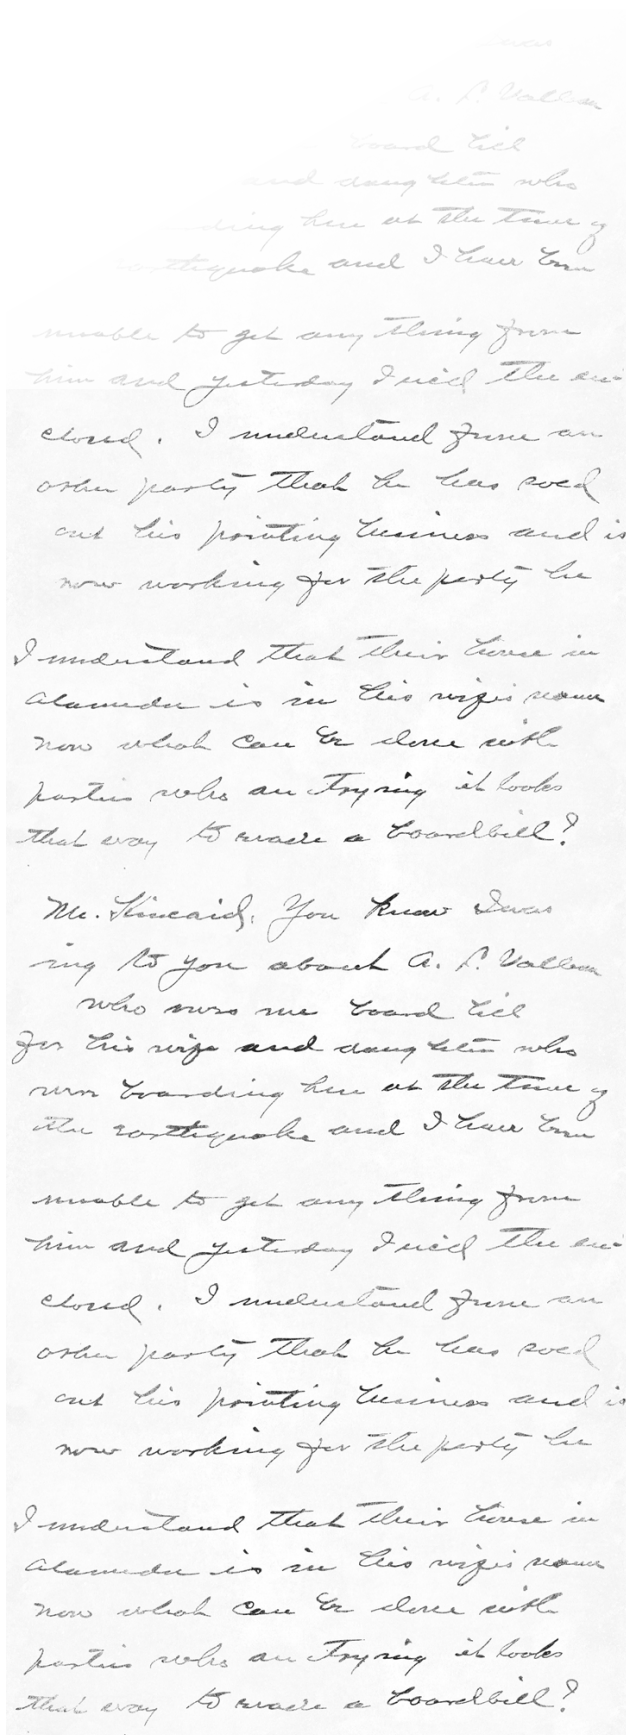 was
A. L. Valleau
board bill
and daughter who
ding here at the time of
earthquake and I have been
unable to get any thing from
him and yesterday I rec'd the en-
closed. I understand from an
other party that he has sold
out his printing business and is
now working for the party he
I understand that their house in
Alameda is in his wife's name
now what can be done with
parties who are trying it looks
that way to evade a boardbill?
Mr. Kincaid, You know I was
ing to you about A. L. Valleau
who owes me board bill
for his wife and daughter who
were boarding here at the time of
the earthquake and I have been
unable to get any thing from
him and yesterday I rec'd the en-
closed. I understand from an
other party that he has sold
out his printing business and is
now working for the party he
I understand that their house in
Alameda is in his wife's name
now what can be done with
parties who are trying it looks
that way to evade a boardbill?